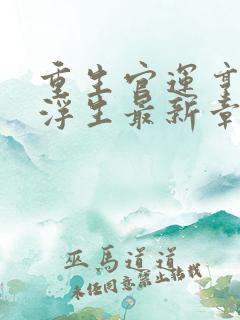 重生官运亨
浮生最新章
巫马道道
未经同意禁止转载